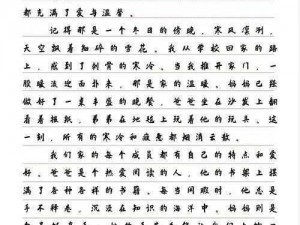 都充满了爱与温馨。
记得那是一个冬日的傍晚，寒风凛冽，
天空飘着细碎的雪花。我从学校回家的路
上，感到了刺骨的寒冷。当我推开家门，一
股暖流迎面扑来，那是家的温暖。妈妈已经
做好了一桌丰盛的晚餐，爸爸坐在沙发上翻
看着报纸，弟弟在地毯上玩着他的玩具。这
一刻，所有的寒冷和疲惫都烟消云散。
我们家的每个成员都有自己的特点和爱
好。爸爸是个热爱阅读的人，他的书架上摆
满了各种各样的书籍。每当闲暇时，他总是
手不释卷，沉浸在知识的海洋中。妈妈则是